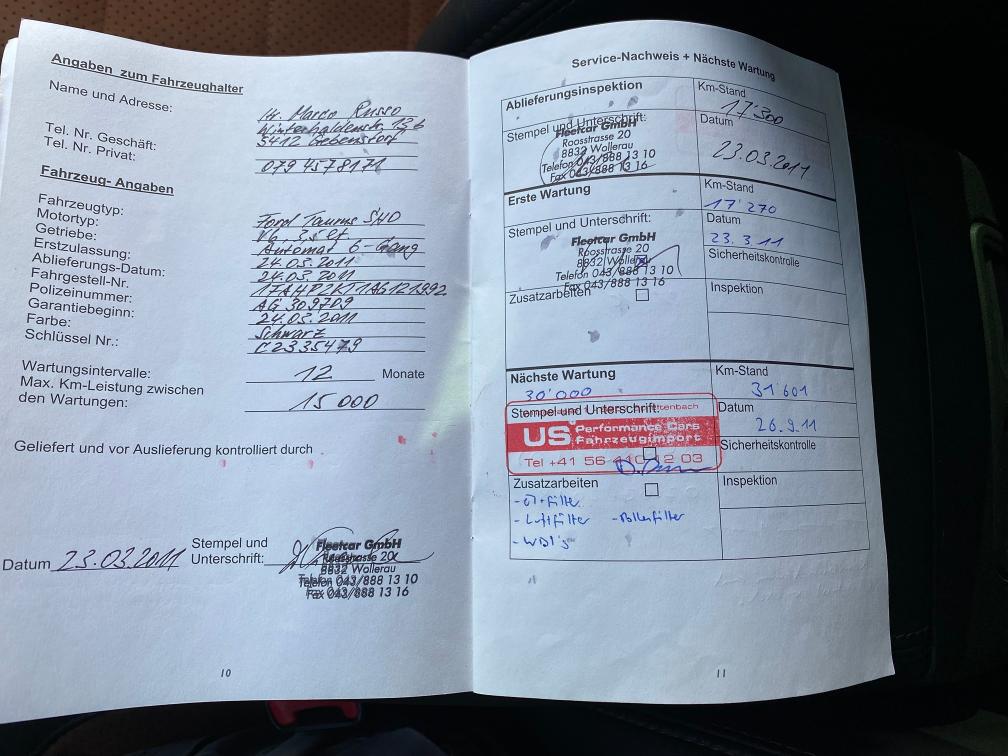 Angaben zum Fahrzeughalter
Name und Adresse: H. Marco Russo
Winterhaldenstr. 12b
5412 Gebenstorf
Tel. Nr. Geschäft:
Tel. Nr. Privat: 079 4578171
Fahrzeug- Angaben
Fahrzeugtyp: Ford Taurus SHO
Motortyp: V6 3.5 Lt
Getriebe: Automat 6-Gang
Erstzulassung: 24.03.2011
Ablieferungs-Datum: 24.03.2011
Fahrgestell-Nr.
Polizeinummer: AG 309709
Garantiebeginn: 24.03.2011
Farbe: Schwarz
Schlüssel Nr.: C2335479
Wartungsintervalle: 12 Monate
Max. Km-Leistung zwischen
den Wartungen: 15 000
Geliefert und vor Auslieferung kontrolliert durch
Datum 23.03.2011 Stempel und
Unterschrift:
Fleetcar GmbH
Roosstrasse 20
8832 Wollerau
Telefon 043/888 13 10
Fax 043/888 13 16
10
Service-Nachweis + Nächste Wartung
Ablieferungsinspektion
Km-Stand
17'300
Stempel und Unterschrift:
Fleetcar GmbH
Roosstrasse 20
8832 Wollerau
Telefon 043/888 13 10
Fax 043/888 13 16
Datum
23.03.2011
Erste Wartung
Km-Stand
17'270
Stempel und Unterschrift:
Fleetcar GmbH
Roosstrasse 20
8832 Wollerau
Telefon 043/888 13 10
Fax 043/888 13 16
Datum
23.3.11
Sicherheitskontrolle
Zusatzarbeiten
Inspektion
Nächste Wartung
30'000
Km-Stand
31'601
Stempel und Unterschrift:
US Performance Cars
Fahrzeugimport
Tel +41 56 410 12 03
Datum
26.9.11
Sicherheitskontrolle
Zusatzarbeiten
Inspektion
- Öl+Filter
- Luftfilter - Pollenfilter
11